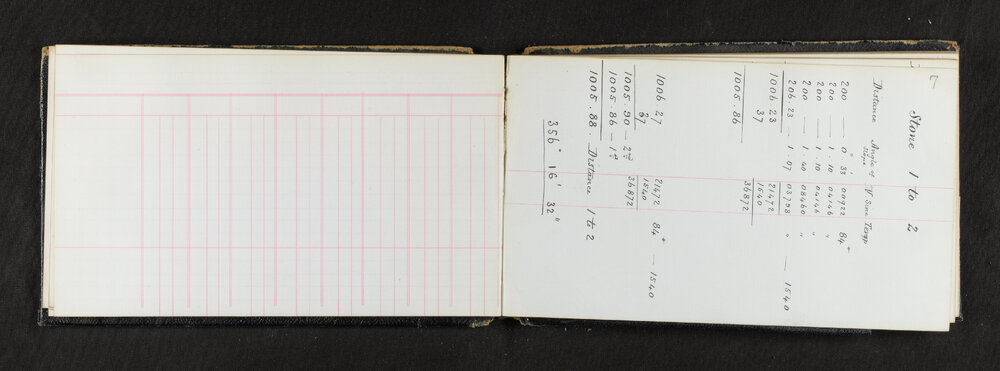 7
Stone 1 to 2
Distance Angle of Slope V. Sine Temp
200 — 0° 33' 00922 84°
200 — 1 . 10 04146 "
200 — 1 . 10 04146 "
200 — 1 . 40 08460 "
206 . 23 — 1 . 07 03798 " — 1540
1006 23 21472
37 1540
1005 . 86 36872
1006 . 27 21472 84° — 1540
37 1540
1005 . 90 — 2nd 36872
1005 . 86 — 1st
1005 . 88 . Distance 1 to 2
356° 16' 32"